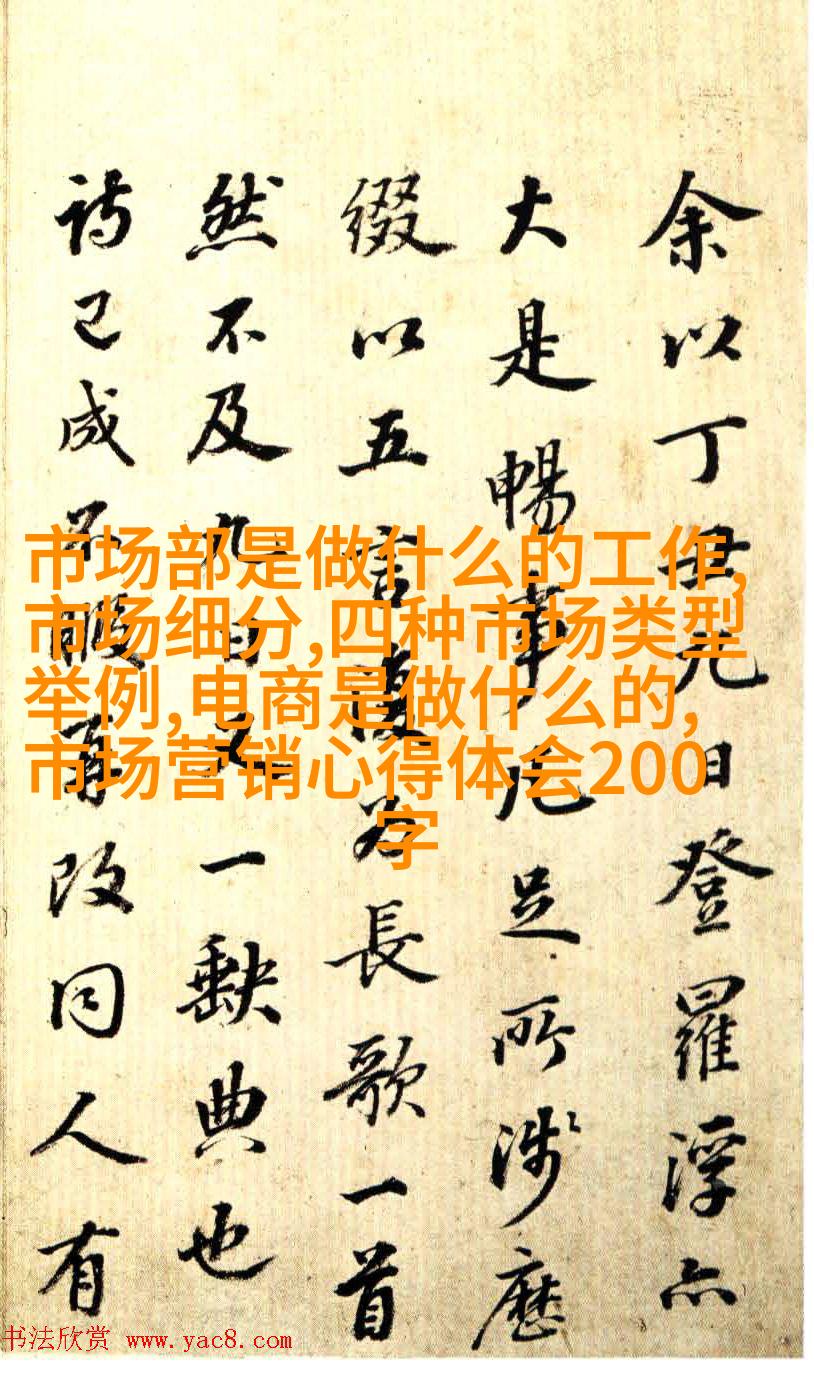 余以丁丑九日登羅浮亦
大是暢事凡足所涉歷
綴以五言復為長歌一首
然不及九日又一缺典也
詩已成不暇再改同人有
市场部是做什么的工作,
市场细分,四种市场类型
举例,电商是做什么的,
市场营销心得体会200
字
书法欣赏 www.yac8.com